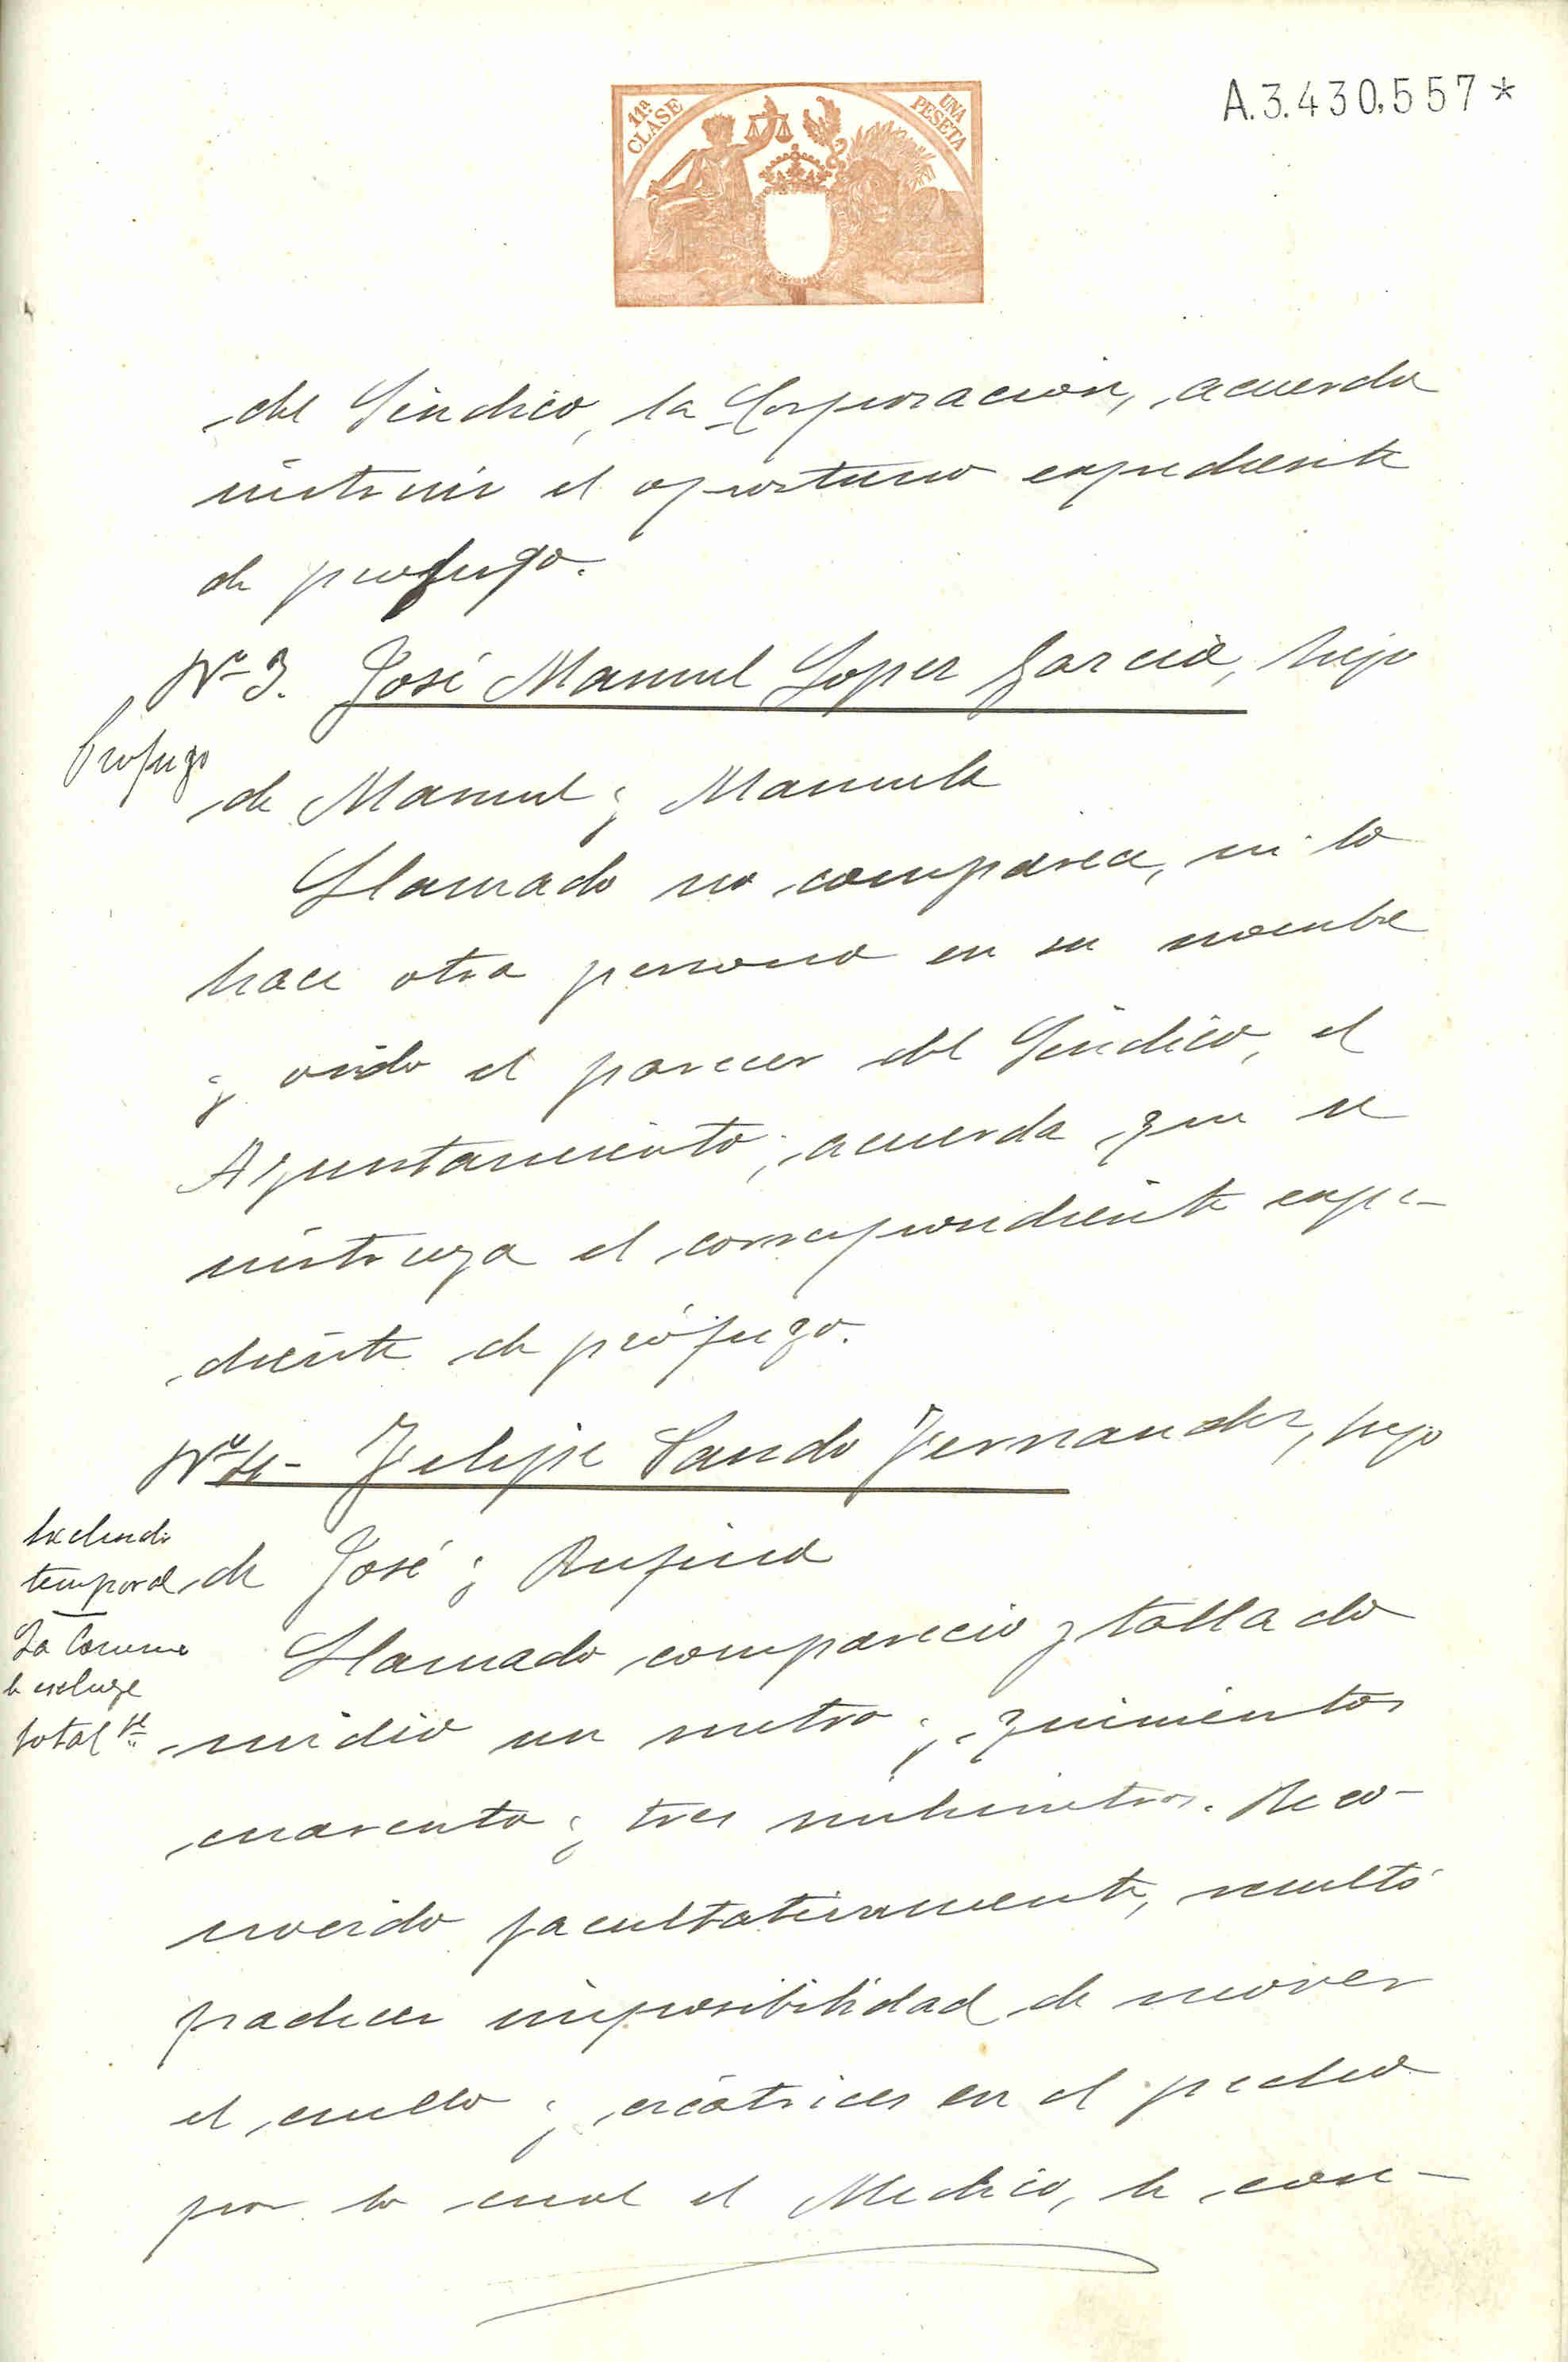 11ª CLASE
UNA PESETA
A.3.430,557*
del Sindico, la Corporacion, acuerda
instruir el oportuno expediente
de profugo.
Nº 3. José Manuel Lopez Garcia, hijo
Profugo
de Manuel y Manuela
Llamado no comparece, ni lo
hace otra persona en su nombre
y oido el parecer del Sindico, el
Ayuntamiento, acuerda que se
instruya el correspondiente expe-
diente de prófugo.
Nº 4- Felipe Pando Fernandez, hijo
Excluido
temporal
de José y Rufina
La Comisn
le excluye
total te
Llamado comparecio y tallado
midio un metro y quinientos
cuarenta y tres milimetros. Reco-
nocido facultativamente, resultó
padecer imposibilidad de mover
el cuello y cicatrices en el pecho
por lo cual el Medico, le con-